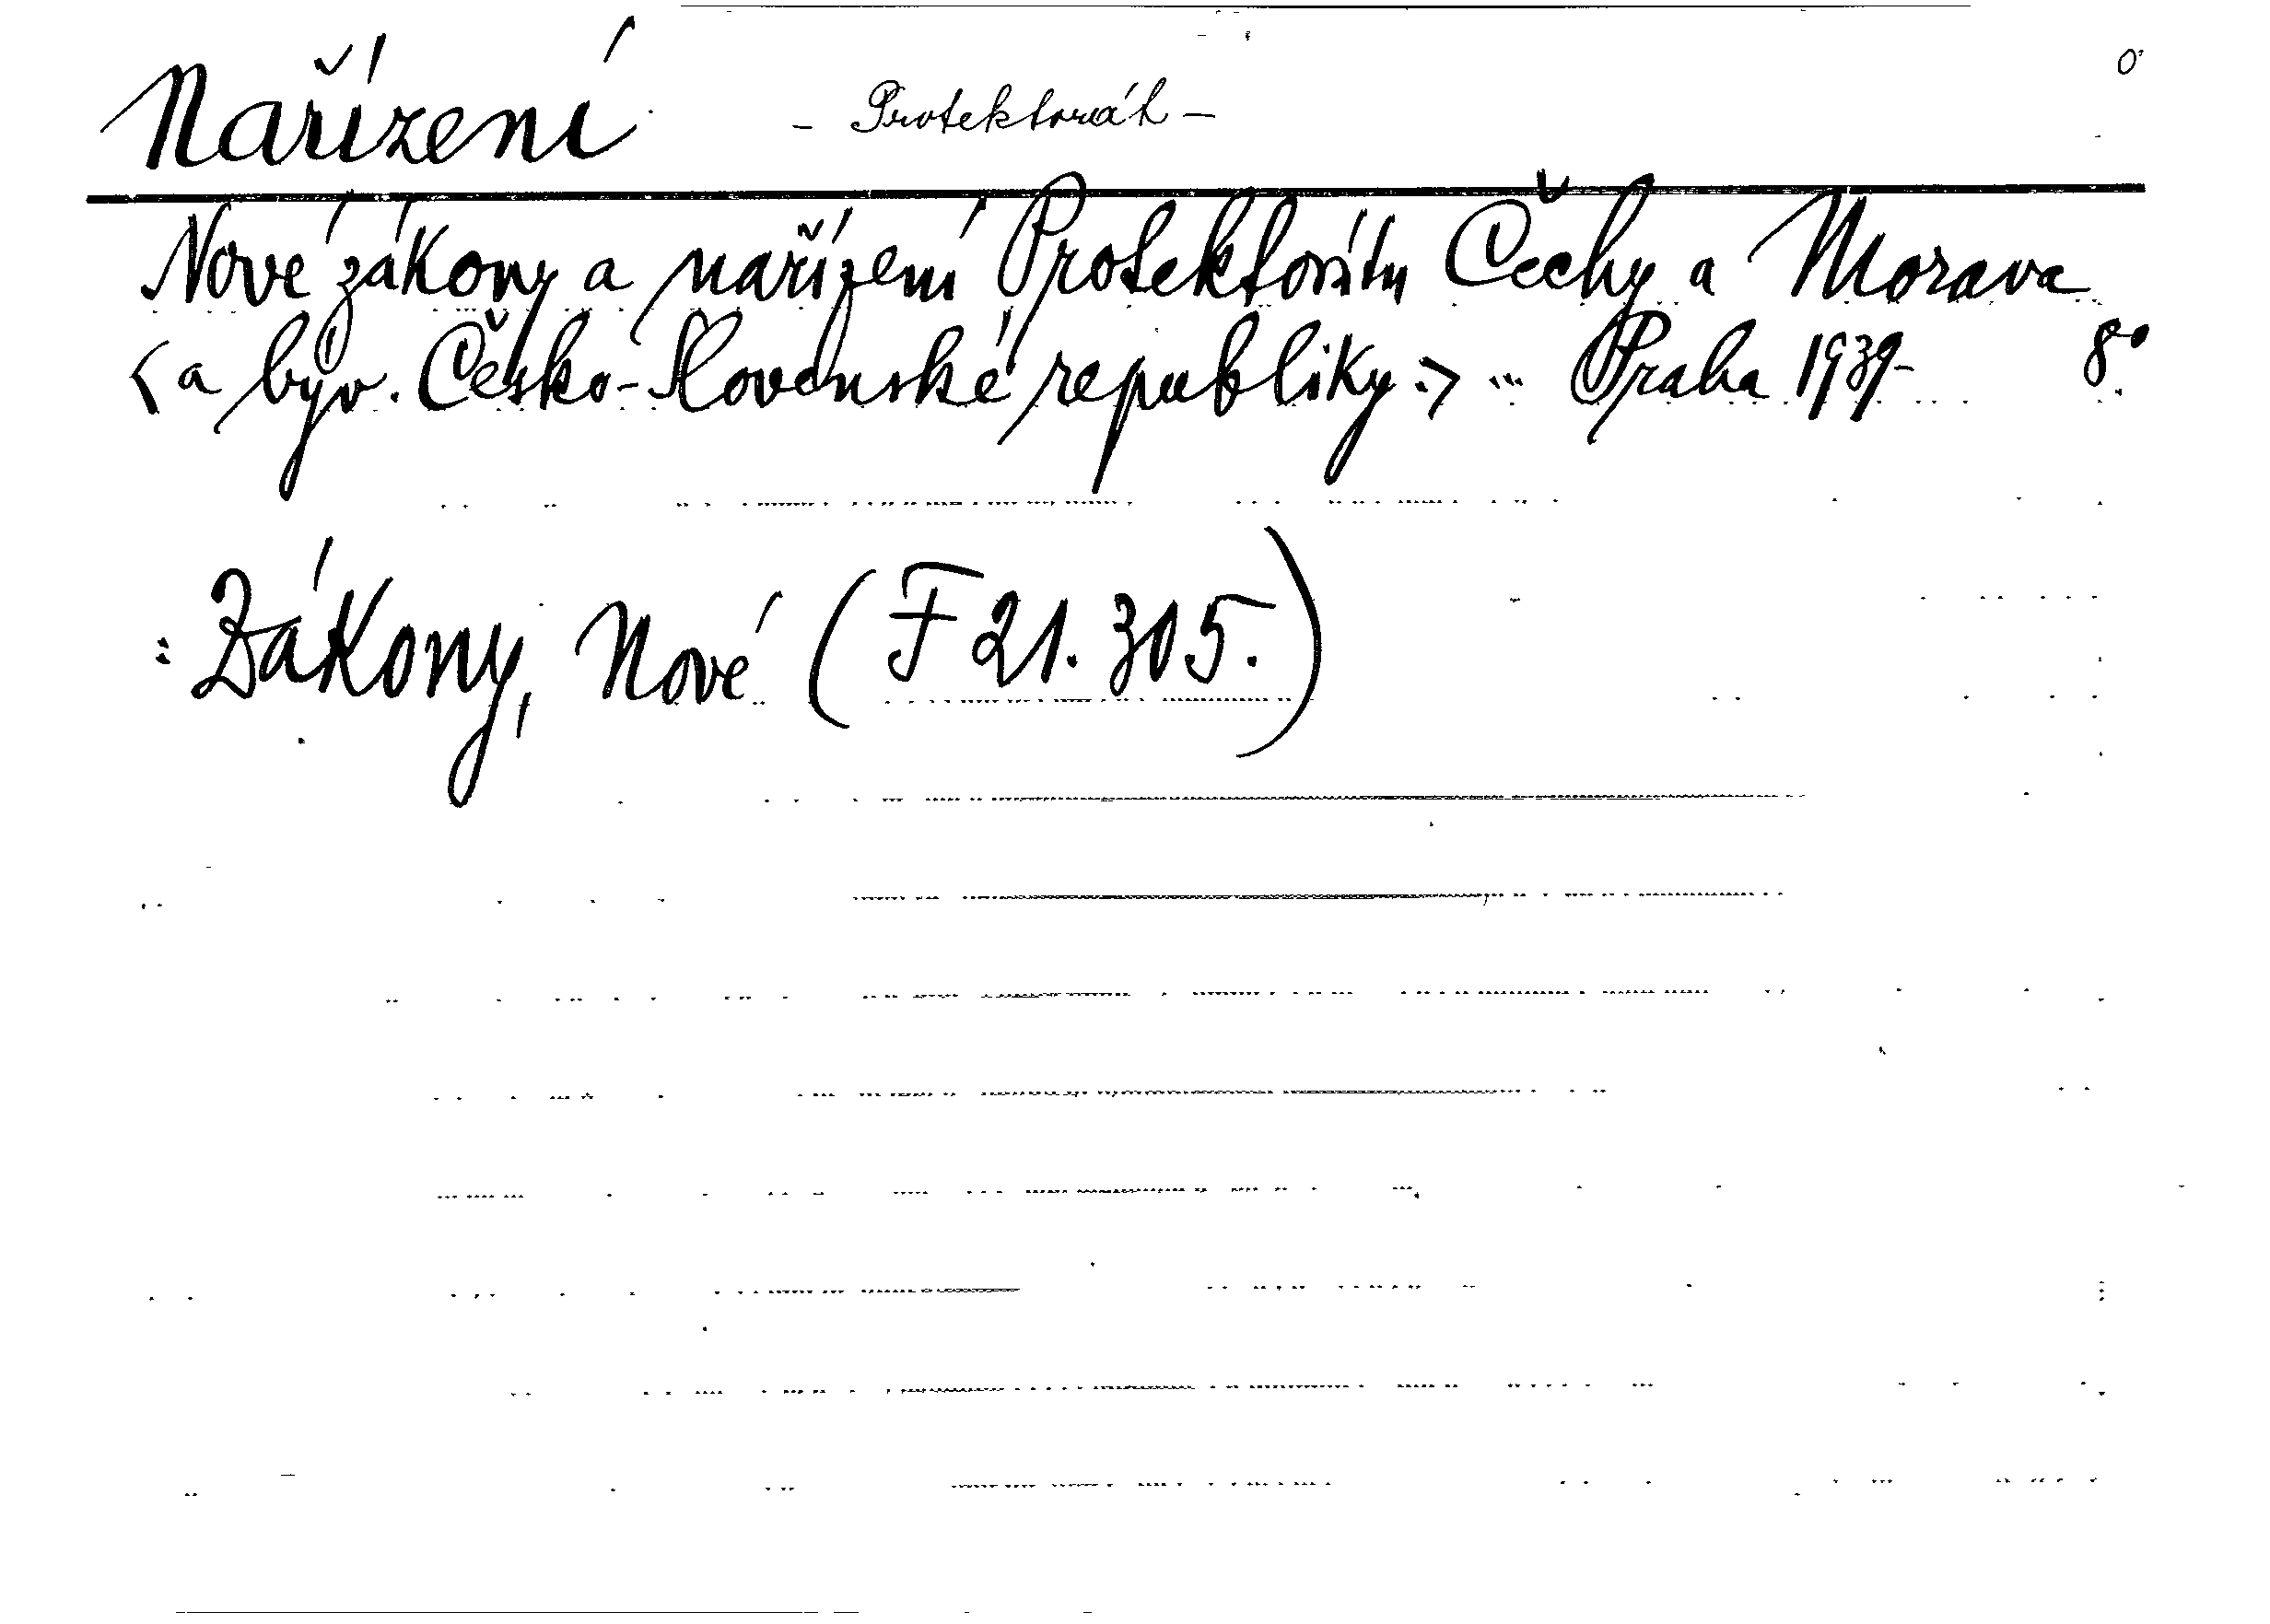 Nařízení - Protektorát - 0
Nové zákony a nařízení Protektorátu Čechy a Morava
< a býv. Česko-Slovenské republiky :> ... Praha 1939- 8°.
: Zákony, Nové (F 21.305.)